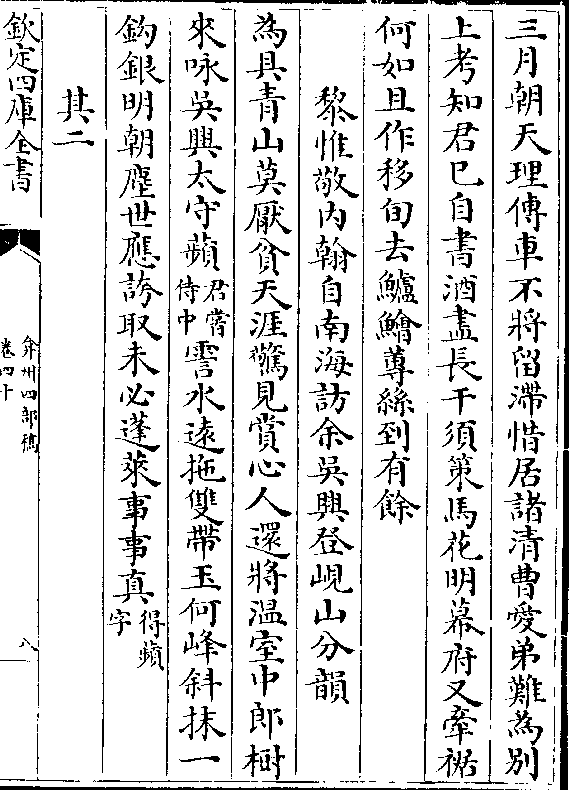 三月朝天理傳車不將留滯惜居諸清曹愛弟難為别
上考知君已自書酒盡長干須策馬花明幕府又牽裾
何如且作移旬去鱸鱠蓴絲到有餘
黎惟敬内翰自南海訪余吳興登峴山分韻
為具青山莫厭貧天涯驚見賞心人還將温室中郎樹
來咏吳興太守蘋君嘗侍中霅水遠拖雙帶玉何峰斜抹一
鈎銀明朝塵世應誇取未必蓬萊事事真得蘋字
其二
欽定四庫全書
弇州四部稿
卷四十
八